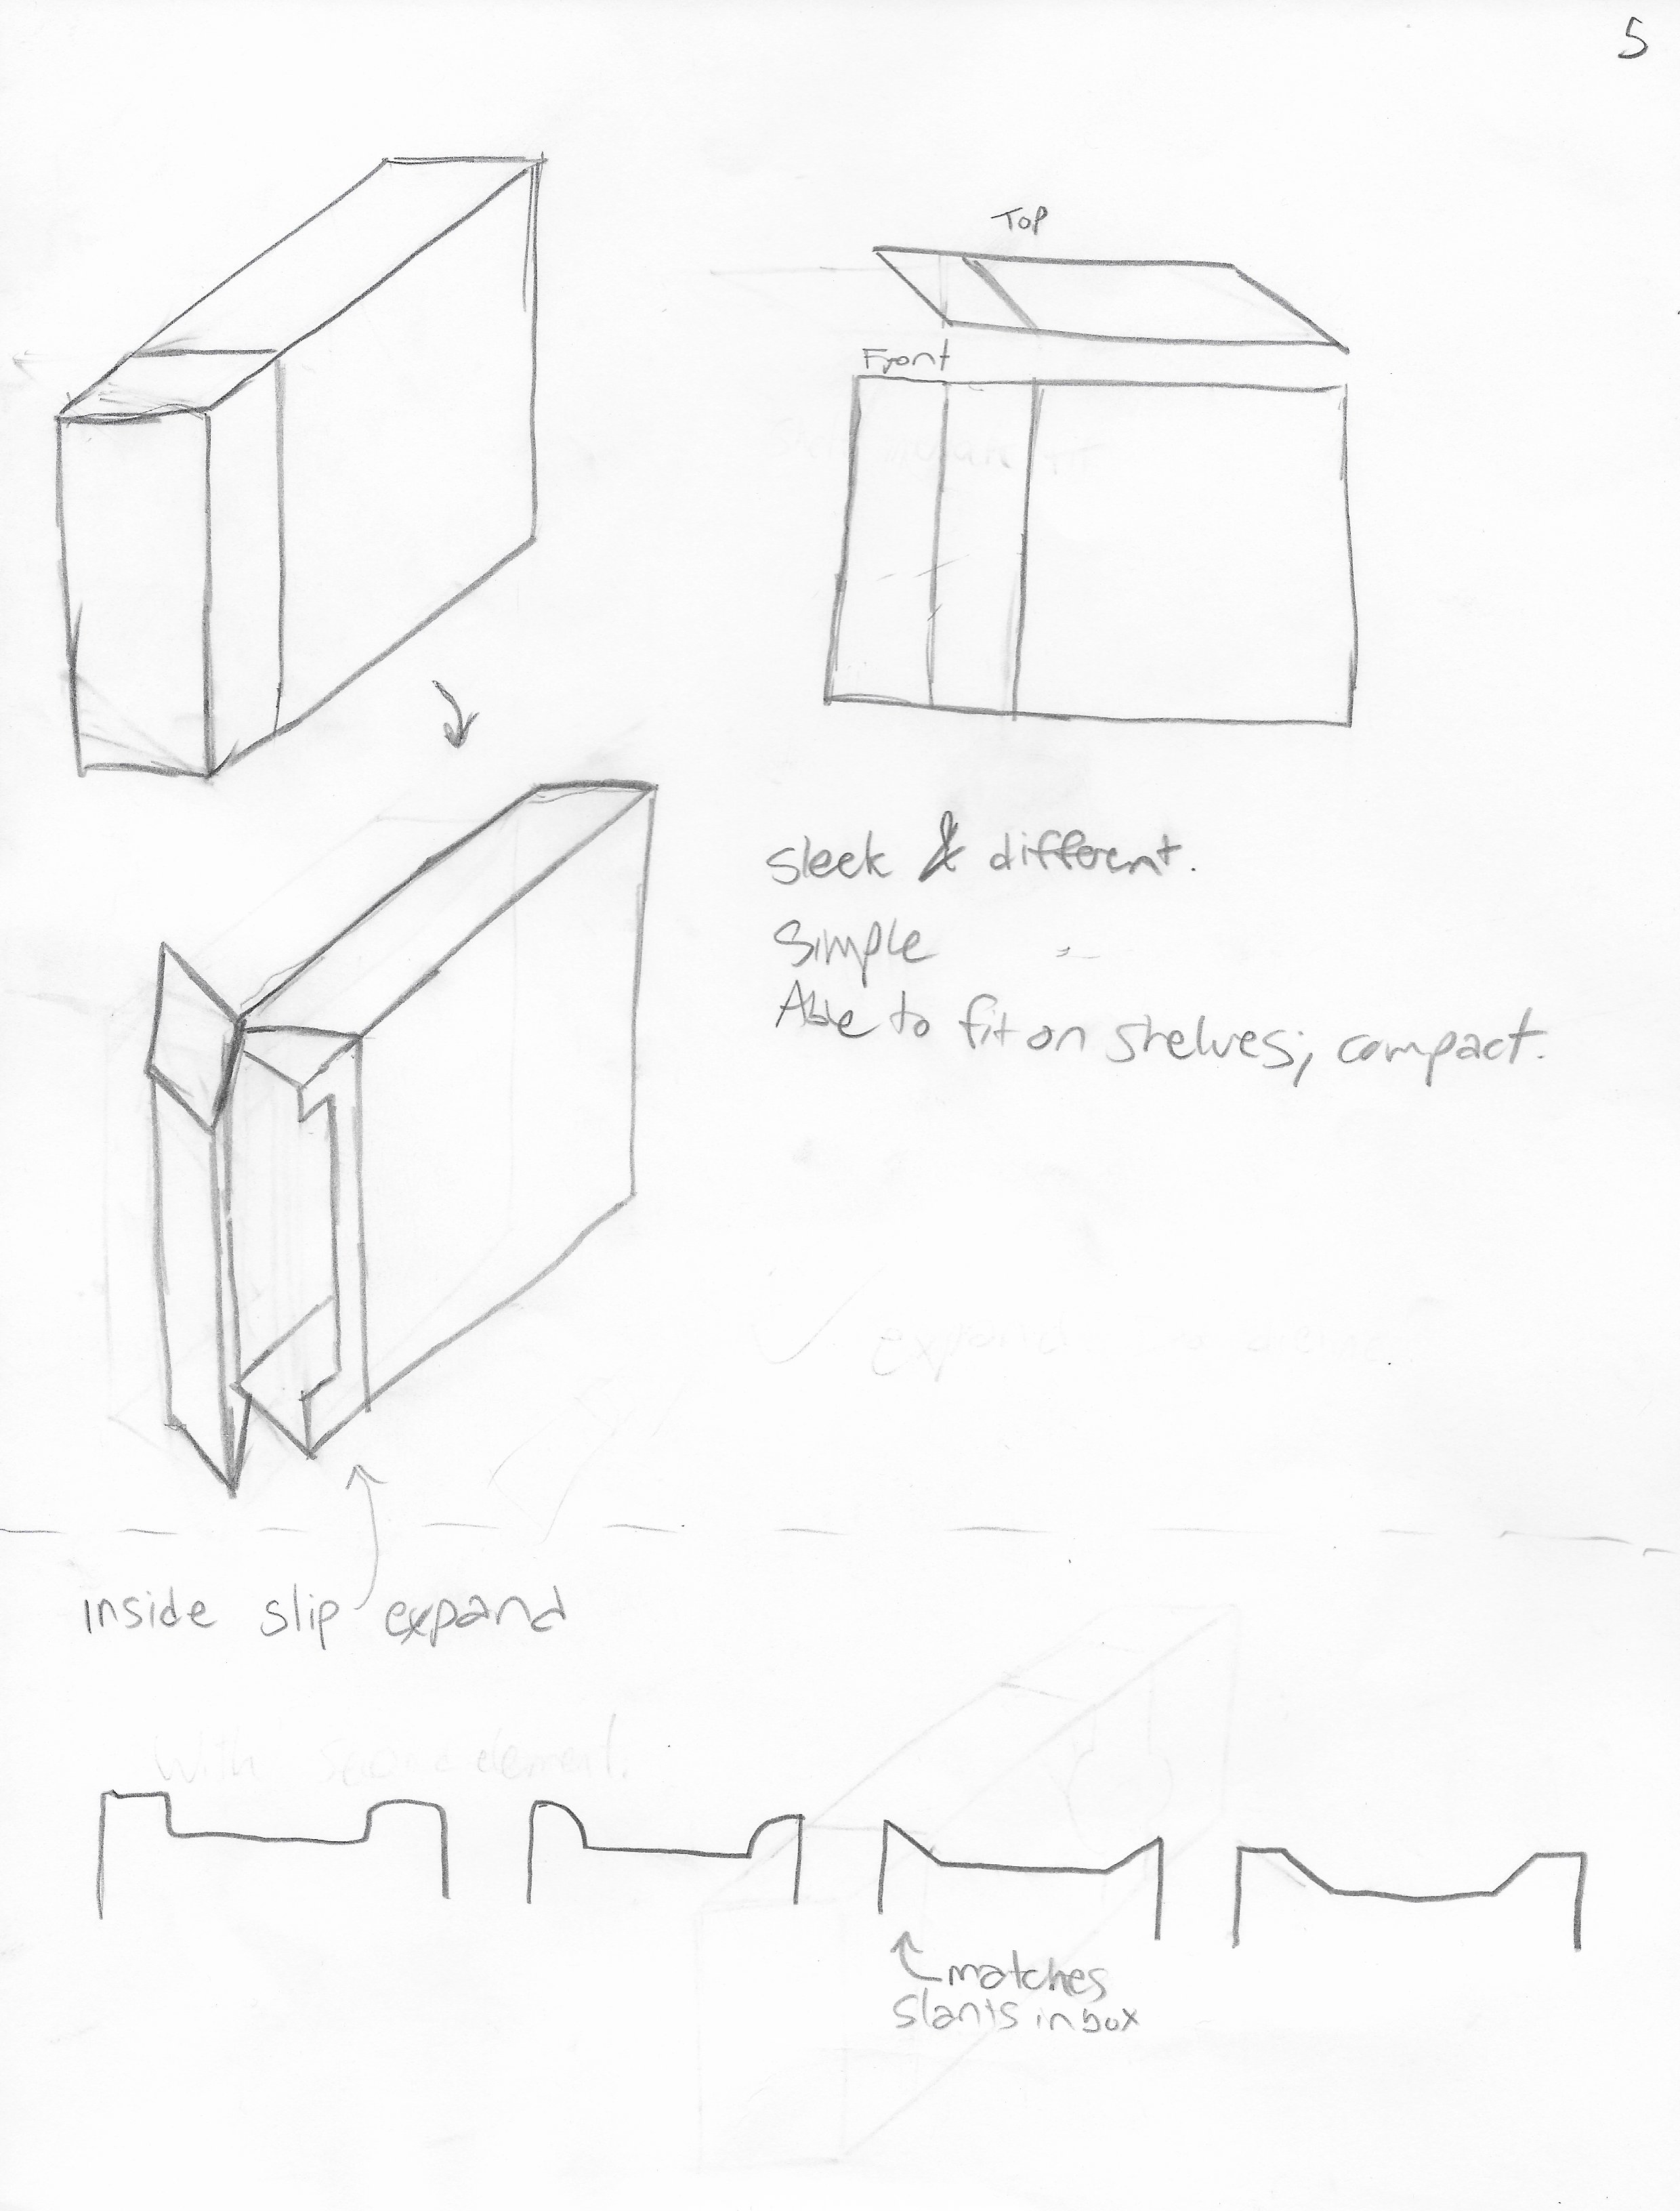 5
Top
Front
sleek & different.
Simple
Able to fit on shelves; compact.
inside slip expand
matches
slants in box